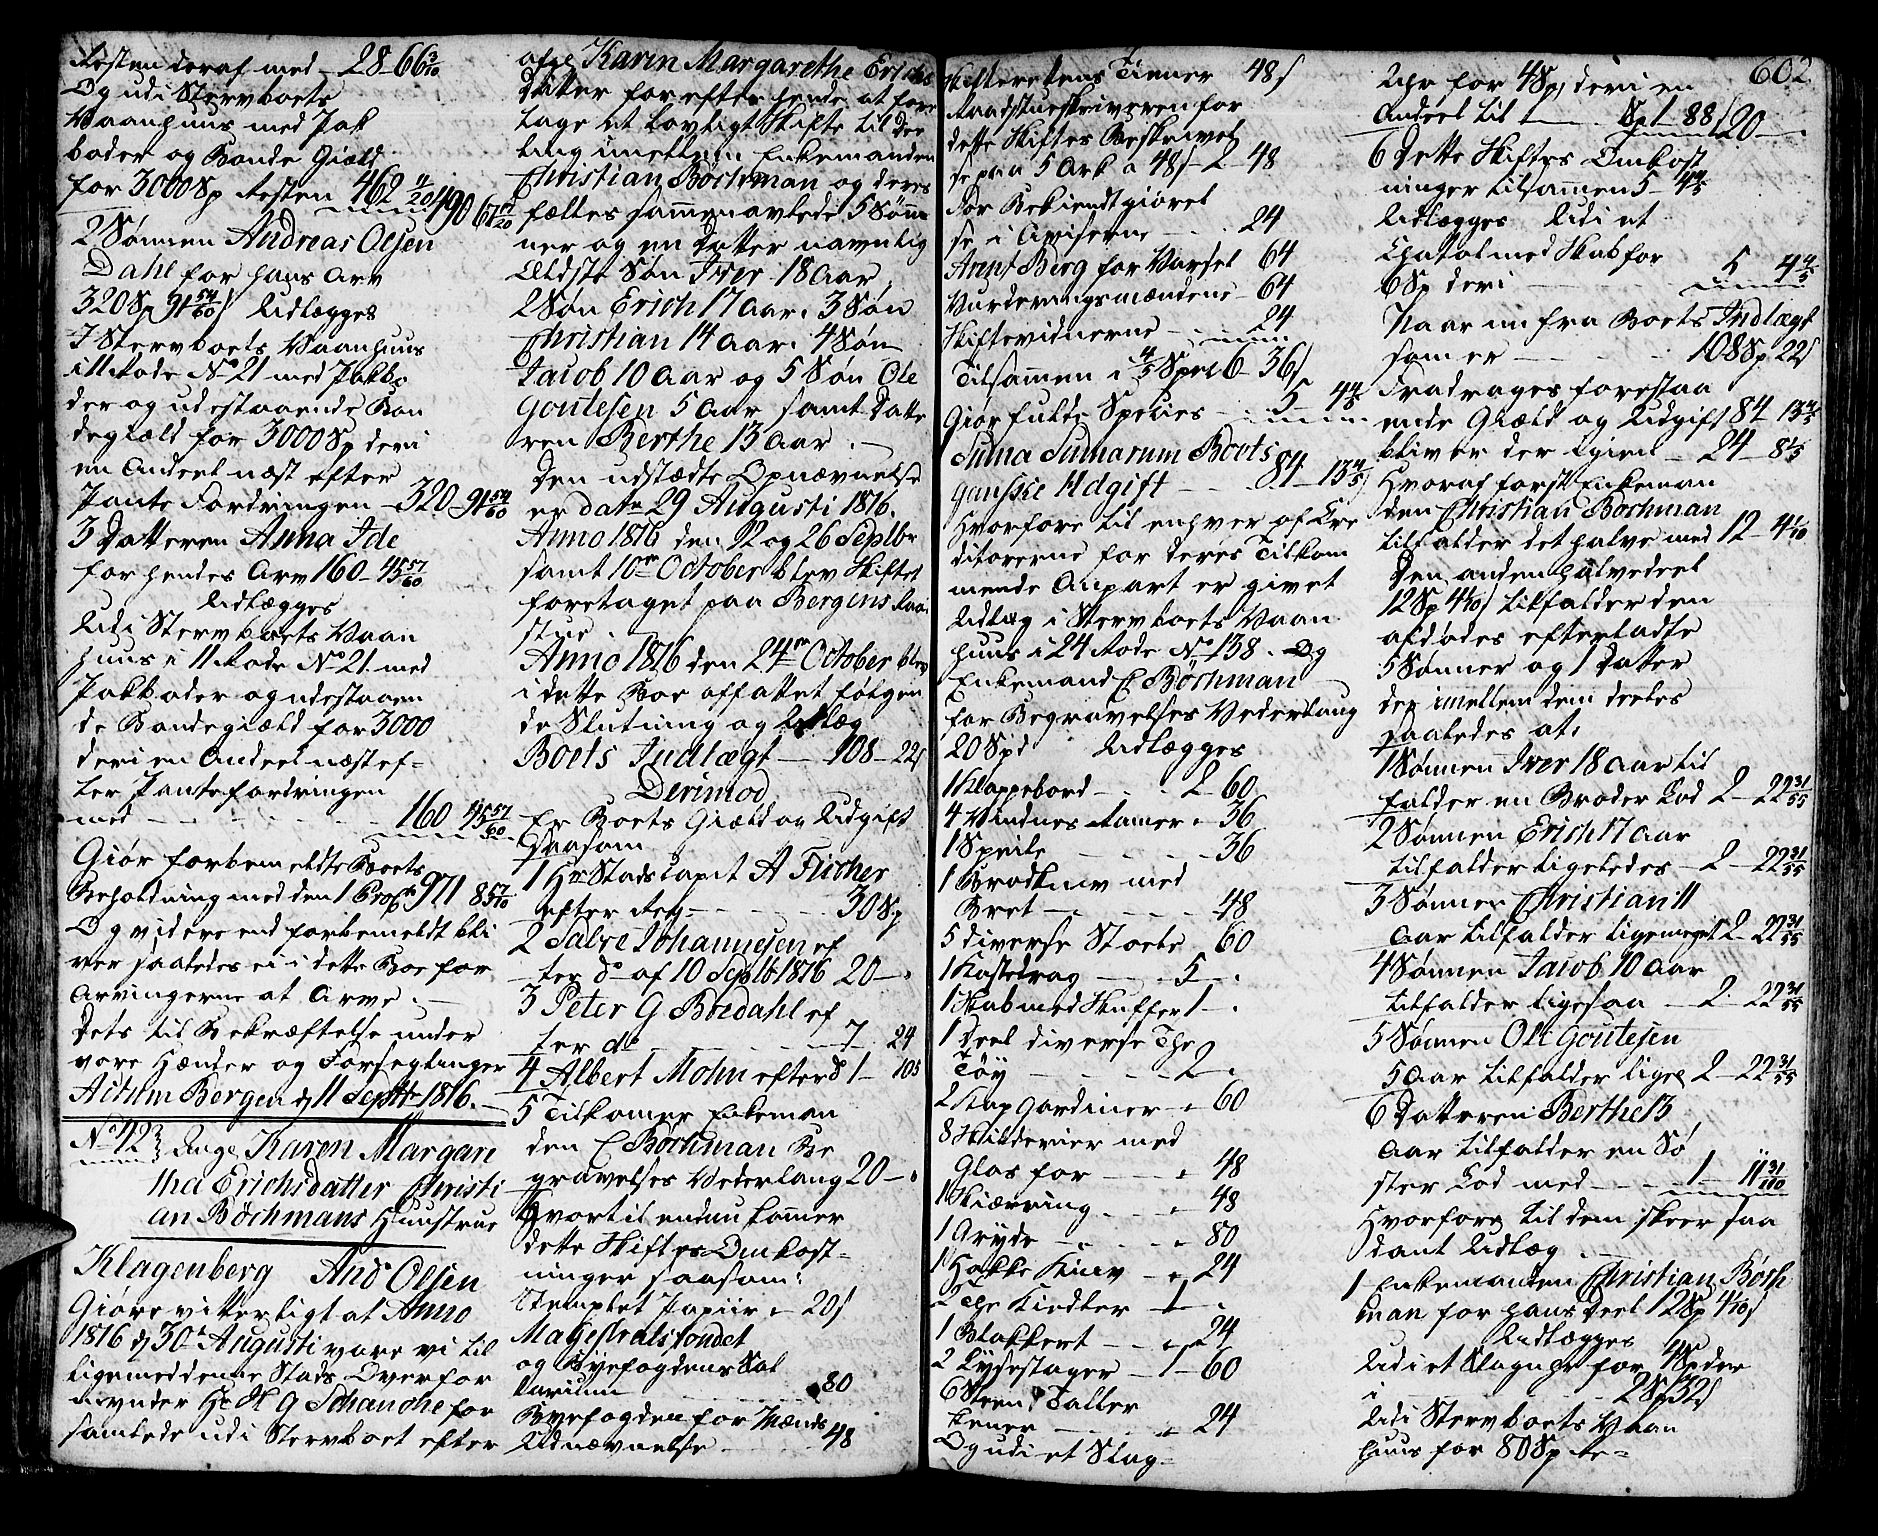 Resten deraf med 28 - 66 3/10
Og udi Stervboets
Vaanhuus med Jak
boder og Bonde Giæld
for 3000 Sp Resten 462 11/20 490 67 17/20
2 Sønnen Andreas Olsen
Dahl for hans Arv
320 Sp 91 54/60 s Udlægges
I Stervboets Vaanhuus
i 11 Rode No 21 med Jakbo
der og udestaaende Bon
degiæld for 3000 Sp deri
en Andeel næst efter
Pante Fordringen - 320 - 91 54/60
3 Datteren Anna Ide
for hendes Arv 160 - 45 57/60
Udlægges
Udi Stervboets Vaan
huus i 11 Rode No 21. med
Jakboder og udestaaen
de Bondegiæld for 3000
deri en Andeel næst ef=
ter Pantefordringen
med - - - - 160 45 57/60
Giør forbemeldte Boets
Beholdning med den 1 Prof 971 8 57/10
Og videre end forbemeldt bli
ver saaledes ei i dette Boe for
Arvingerne at Arve. -
Dets til Bekræftelse under
vore Hænder og Forseglinger
Actum Bergen d 11 Septbr 1816. -
No 42 Auge Karen Margare
tha Erichsdatter Christi
an Böchmans Huustrue
Klagenberg And Olsen
Giøre vitterligt at Anno
1816 d 30te Augusti vare vi til
ligemed denne Stads Overfor
mynder Hr H G Schanche for
samlede udi Stervboet efter
afge Karin Margarethe Erichs
datter for efter hende at fore
tage et lovligt Skifte til De
ling imellem Enkemanden
Christian Böchman og deres
fælles sammenavlede 5 Søn
ner og en Datter navnlig
Ældste Søn Iver 18 Aar,
2 Søn Erich 17 Aar. 3 Søn
Christian 14 Aar. 4 Søn
Jacob 10 Aar og 5 Søn Ole
Goutesen 5 Aar samt Datte
ren Berthe 13 Aar. -
Den udstædte Opnævnelse
er date 29 Augusti 1816.
Anno 1816 den 12 og 26 Septbr
samt 10de October blev Skiftet
foretaget paa Bergens Raad
stue
Anno 1816 den 24de October blev
i dette Boe affattet følgen
de Slutning og Udlæg
Boets Indlægt - 108 - 22 s
Derimod
Er Boets Giæld og Udgift
saasom
1 Hr Stads Capit A Fischer
efter Reg - - - 30 Sp
2 Salve Johannesen ef
ter do af 10 Septb 1816 20 - .
3 Peter G Boedahl ef
ter do - - - 7 24
4 Albert Mohn efter do 1 - 105
5 Tilkommer Enkeman
den C Böchman Be
gravelses Vederlaug 20 - .
Hvortil endnu kommer
dette Skiftes Omkost=
ninger saasom:
Stemplet Papiir - 20 s
Magestratsfondet
og Byefogdens Sal
larium - 80
Byefogden for Mænds
Udnævnelse - - 48
Skifterettens Tiener 48 s
Raadstueskriveren for
dette Skiftes Beskrivel
se paa 5 Ark a 48 s - 2 48
For Bekiendtgiørel
se i Aviserne - - 24
Arent Berg for Varsel 64
Vurderingsmændene - 64
Skiftevidnerne - - 24
Tilsammen i 4/5 Spec 6 36 s
Giør fulde Species - 5 - 4 4/5
Suma Sumarum Boets
gandske Udgift - - 84 - 13 4/5
Hvorfore til enhver af Cre
ditorerne for deres Tilkom
mende Anpart er givet
Udlæg i Stervboets Vaan
huus i 24 Rode No 138. Og
Enkemand C Böchman
for Begravelses Vederlaug
20 Spd Udlægges
1 Klappebord - - 2 - 60
4 Vindues Ramer - 36
1 Speile - - - 36
1 Brodkniv med
Bret - - - - 48
5 diverse Stoele - 60
1 Kastedrag - - 5 - .
1 Skab med Skuffer 1 - .
1 Deel diverse The
Töy - - - - 2 .
2 Rap Gardiner - 60
8 Skilderier med
Glas for - - 48
1 - - - 48
1 Gryde - - - 80
1 Hakke Kniv - - 24
2 The Kiedler - 1 - .
1 Blakkert - - 24
2 Lysestager - 1 - 60
6 Steen Taller
kener - - - 24
Og udi et Slag-
602
Uhr for 4 Sp, deri en
Andeel til - Sp 1 88 s 20 -
6 Dette Skiftes Omkost
ninger tilsammen 5 - 4 4/5
Udlægges Udi et
Chatol med Skab for
6 Sp deri - - 5 4 4/5
Naar nu fra Boets Indlægt
som er - - 108 Sp 22 s
Fradrages forestaa
ende Giæld og Udgift 84 13 4/5
bliver der Igien - 24 - 8 1/5
Hvoraf først Enkeman
den Christian Böchman
tilfalder det halve med 12 - 4 1/10
Den anden halvedeel
12 Sp 4 1/10 s tilfalder den
afdødes efterladte
5 Sønner og 1 Datter
der imellem dem deeles
saaledes at,
1 Sønnen Iver 18 Aar til
falder en Broder Lod 2 - 22 31/55
2 Sønnen Erich 17 Aar
tilfalder ligeledes - 2 - 22 31/55
3 Sønnen Christian 11
Aar tilfalder ligemeget 2 - 22 31/55
4 Sønnen Jacob 10 Aar
tilfalder ligesaa - 2. 22 31/55
5 Sønnen Ole Goutesen
5 Aar tilfalder lige 2 - 22 31/55
6 Datteren Berthe 13
Aar tilfalder en Sø
ster Lod med - - 1 - 11 31/110
Hvorfore til dem skeer saa
dant Udlæg. -
1 Enkemanden Christian Böch
man for hans Deel 12 Sp 4 1/10 s
Udlægges
Udi et Slaguhr for 4 Sp der
i - - - 2 Sp 32 s
Udi Stervboets Vaan
huus for 80 Sp Re=